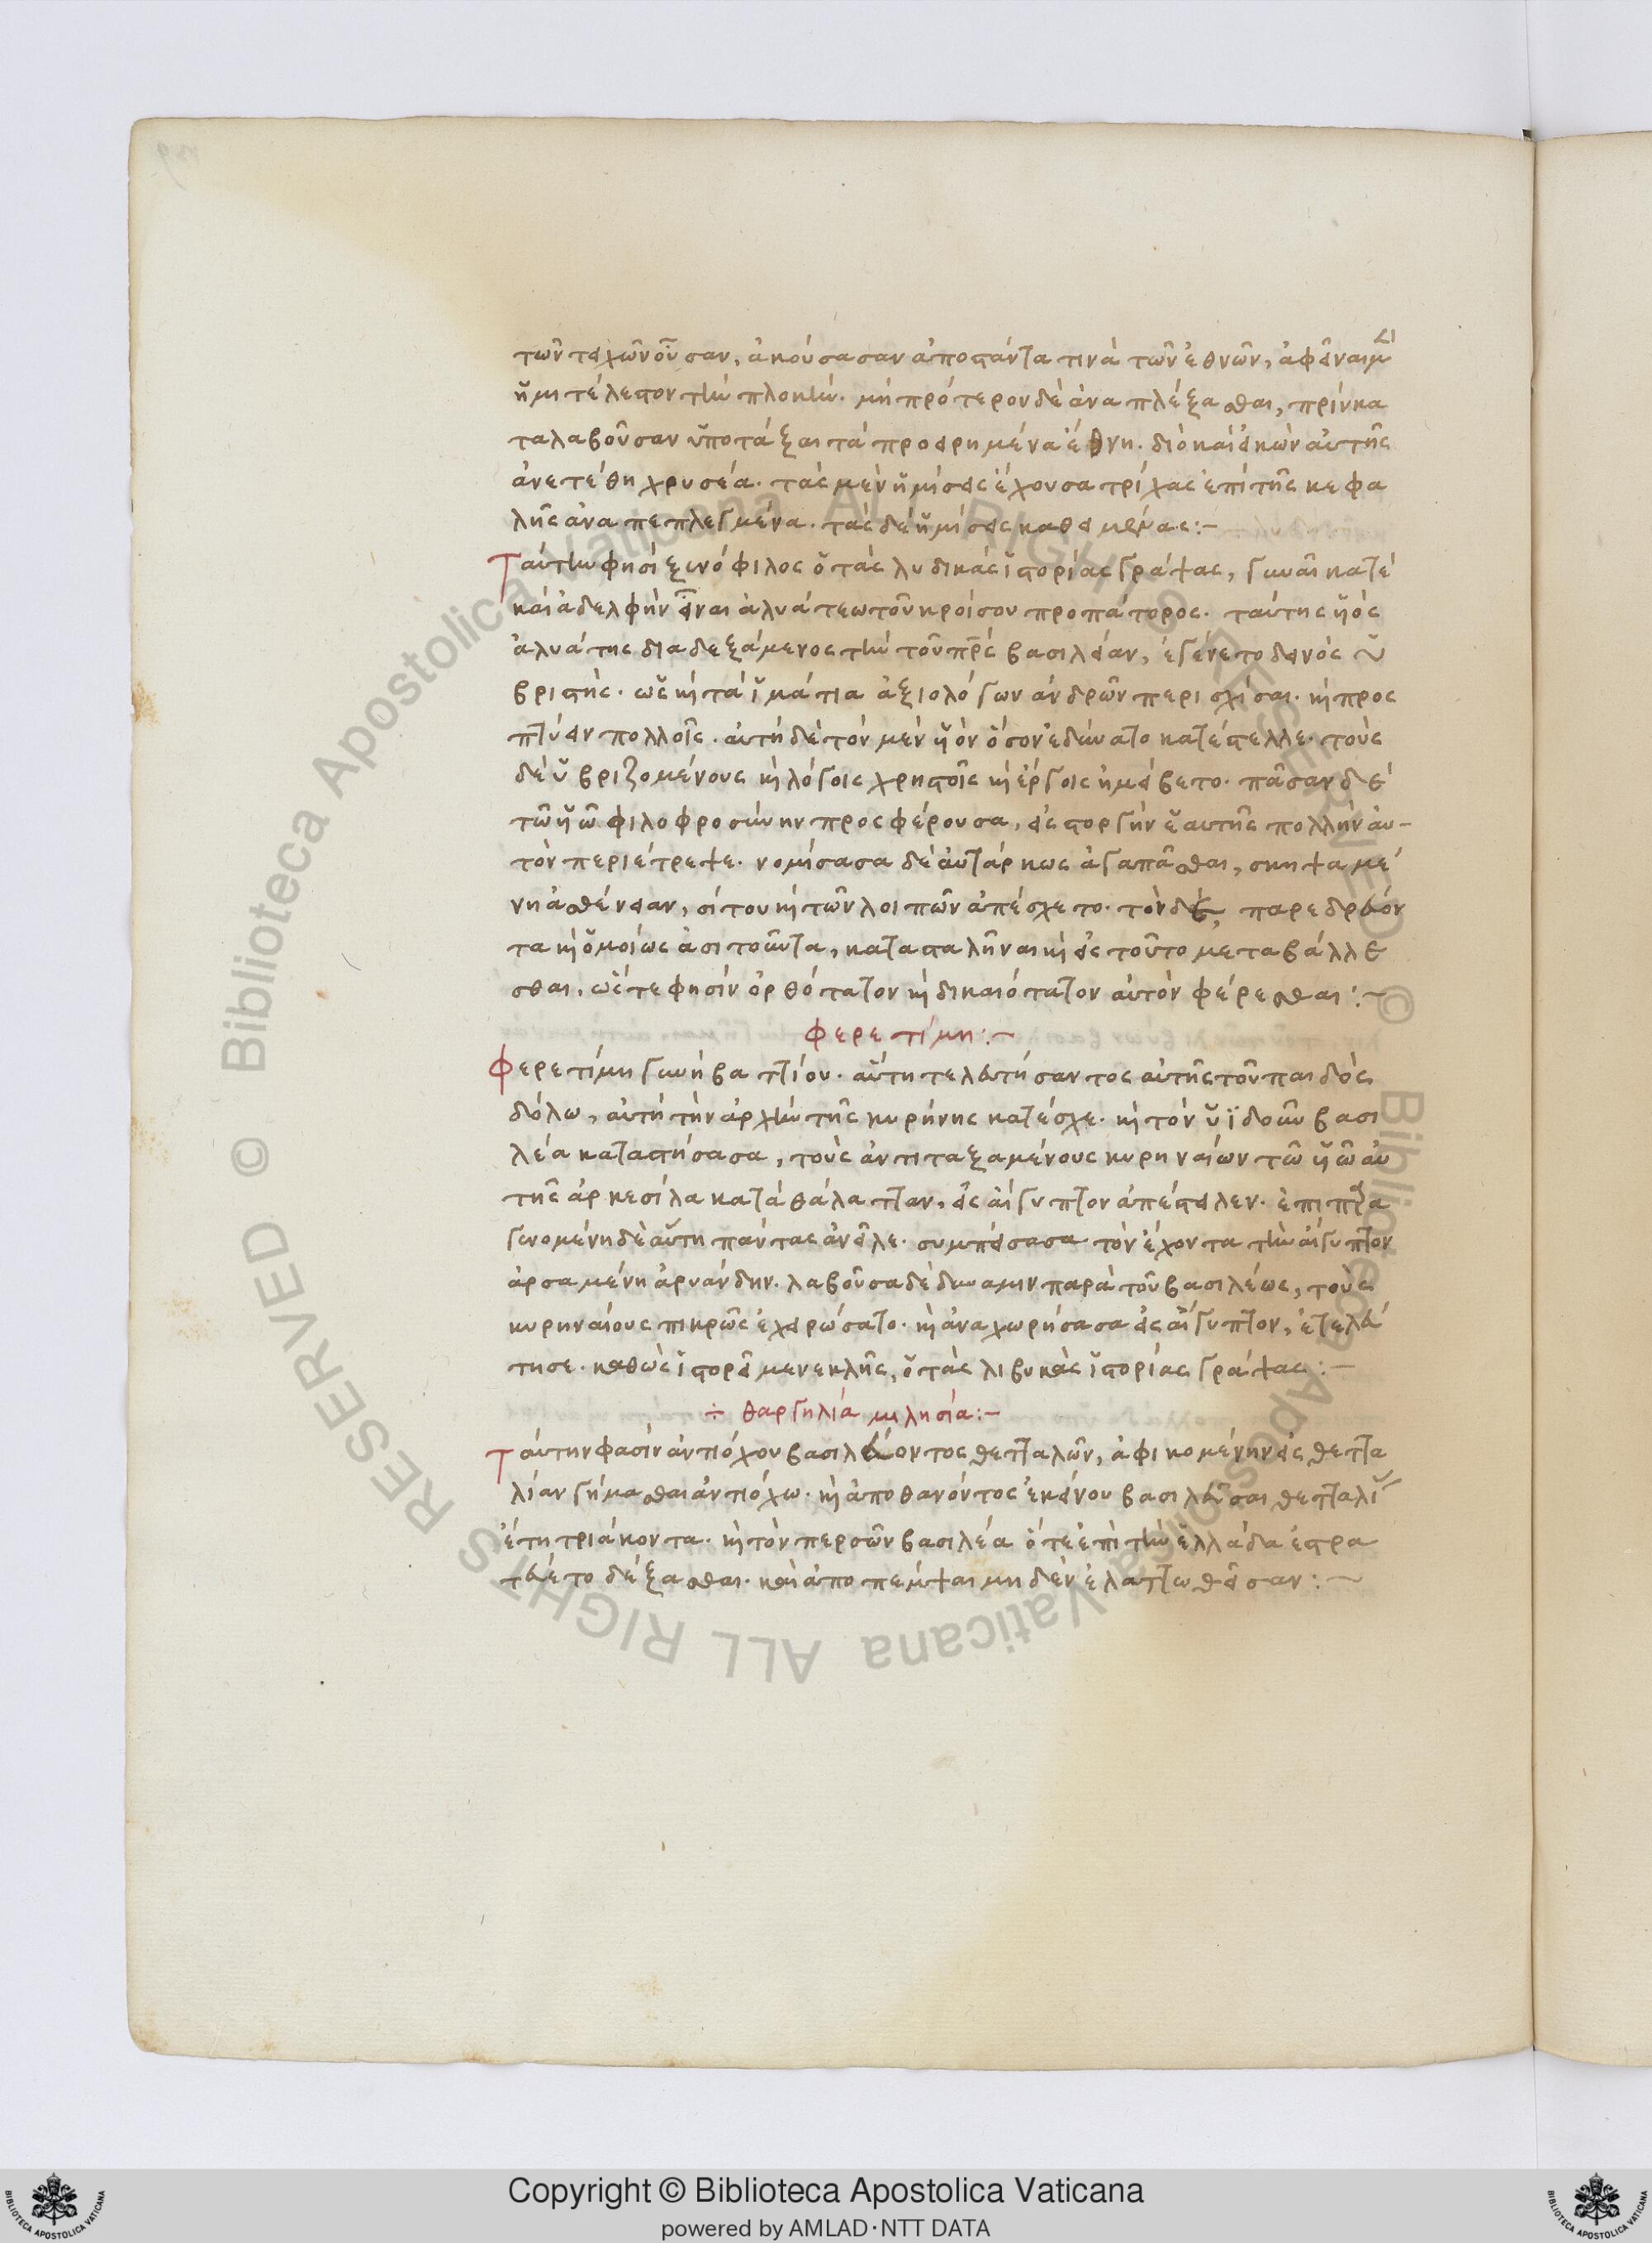 τῶν τειχῶν οὖσαν, ἀκούσασαν ἀποστάντα τινὰ τῶν ἐθνῶν, ἀφεῖναι μὲν
ἡμιτέλεστον τὴν πλοκήν. μὴ πρότερον δὲ ἀναπλέξασθαι, πρὶν κα
ταλαβοῦσαν ὑποτάξαι τὰ προειρημένα ἔθνη. διὸ καὶ εἰκὼν αὐτῆς
ἀνετέθη χρυσέα. τὰς μὲν ἡμίσεις ἔχουσα τρίχας ἐπὶ τῆς κεφα
λῆς ἀναπεπλεγμένα. τὰς δὲ ἡμίσεις καθειμένας:~
Ταύτην φησὶ ξενόφιλος ὁ τὰς λυδικὰς ἱστορίας γράψας, γυναῖκα τὲ
καὶ ἀδελφὴν εἶναι ἀλυάτεω τοῦ κροίσου προπάτορος. ταύτης υἱὸς
ἀλυάτης διαδεξάμενος τὴν τοῦ πρς βασιλείαν, ἐγένετο δεινὸς ὑ
βριστής. ὡς κὶ τὰ ἱμάτια ἀξιολόγων ἀνδρῶν περισχίσαι. κὶ προς
πτύειν πολλοῖς. αὐτὴ δὲ τὸν μὲν υἱὸν ὅσον ἐδύνατο κατέστελλε. τοὺς
δὲ ὑβριζομένους κὶ λόγοις χρηστοῖς κὶ ἔργοις ἠμείβετο. πᾶσαν δὲ
τῶ υἱῶ φιλοφροσύνην προσφέρουσα, εἰς στοργὴν ἑαυτῆς πολλὴν αὐ-
τὸν περιέτρεψε. νομίσασα δὲ αὐτάρκως ἀγαπᾶσθαι, σκηψαμέ
νη ἀσθένειαν, σίτου κὶ τῶν λοιπῶν ἀπέσχετο. τὸν δὲ, παρεδρεύον
τα κὶ ὁμοίως ἀσιτοῦντα, κατασταλῆναι κὶ εἰς τοῦτο μεταβάλλε
σθαι, ὥς τε φησὶν ὀρθότατον κὶ δικαιότατον αὐτὸν φέρεσθαι:~
φερετίμη:~
Φερετίμη γυνὴ βαττίου. αὕτη τελευτήσαντος αὐτῆς τοῦ παιδὸς
δόλω, αὐτὴ τὴν ἀρχὴν τῆς κυρήνης κατέσχε. κὶ τὸν ὑϊδοῦν βασι
λέα καταστήσασα, τοὺς ἀντιταξαμένους κυρηναίων τῶ υἱῶ αὐ
τῆς ἀρκεσίλα κατὰ θάλατταν, εἰς αἴγυπτον ἀπέστειλεν. ἐπιπαρα
γενομένη δὲ αὕτη πάντας ἀνεῖλε. συμπείσασα τὸν ἔχοντα τὴν αἴγυπτον
ἀρσαμένη ἀρυάνδην. λαβοῦσα δὲ δύναμιν παρὰ τοῦ βασιλέως, τοὺς
κυρηναίους πικρῶς ἐχειρώσατο. κὶ ἀναχωρήσασα εἰς αἴγυπτον, ἐτελεύ
τησε. καθὼς ἱστορεῖ μενεκλῆς, ὁ τὰς λιβυκὰς ἱστορίας γράψας:—
÷ θαργηλιά μιλησία:—
Ταύτην φασὶν ἀντιόχου βασιλεύοντος θετταλῶν, ἀφικομένην εἰς θεττα
λίαν γήμασθαι ἀντιόχω. κὶ ἀποθανόντος ἐκείνου βασιλεῦσαι θετταλί
ἔτη τριάκοντα. κὶ τὸν περσῶν βασιλέα ὅτε ἐπὶ τὴν ἑλλάδα ἐστρα
τεύετο δέξασθαι. καὶ ἀποπέμψαι μηδὲν ἐλαττωθεῖσαν:~
Copyright © Biblioteca Apostolica Vaticana
powered by AMLAD·NTT DATA